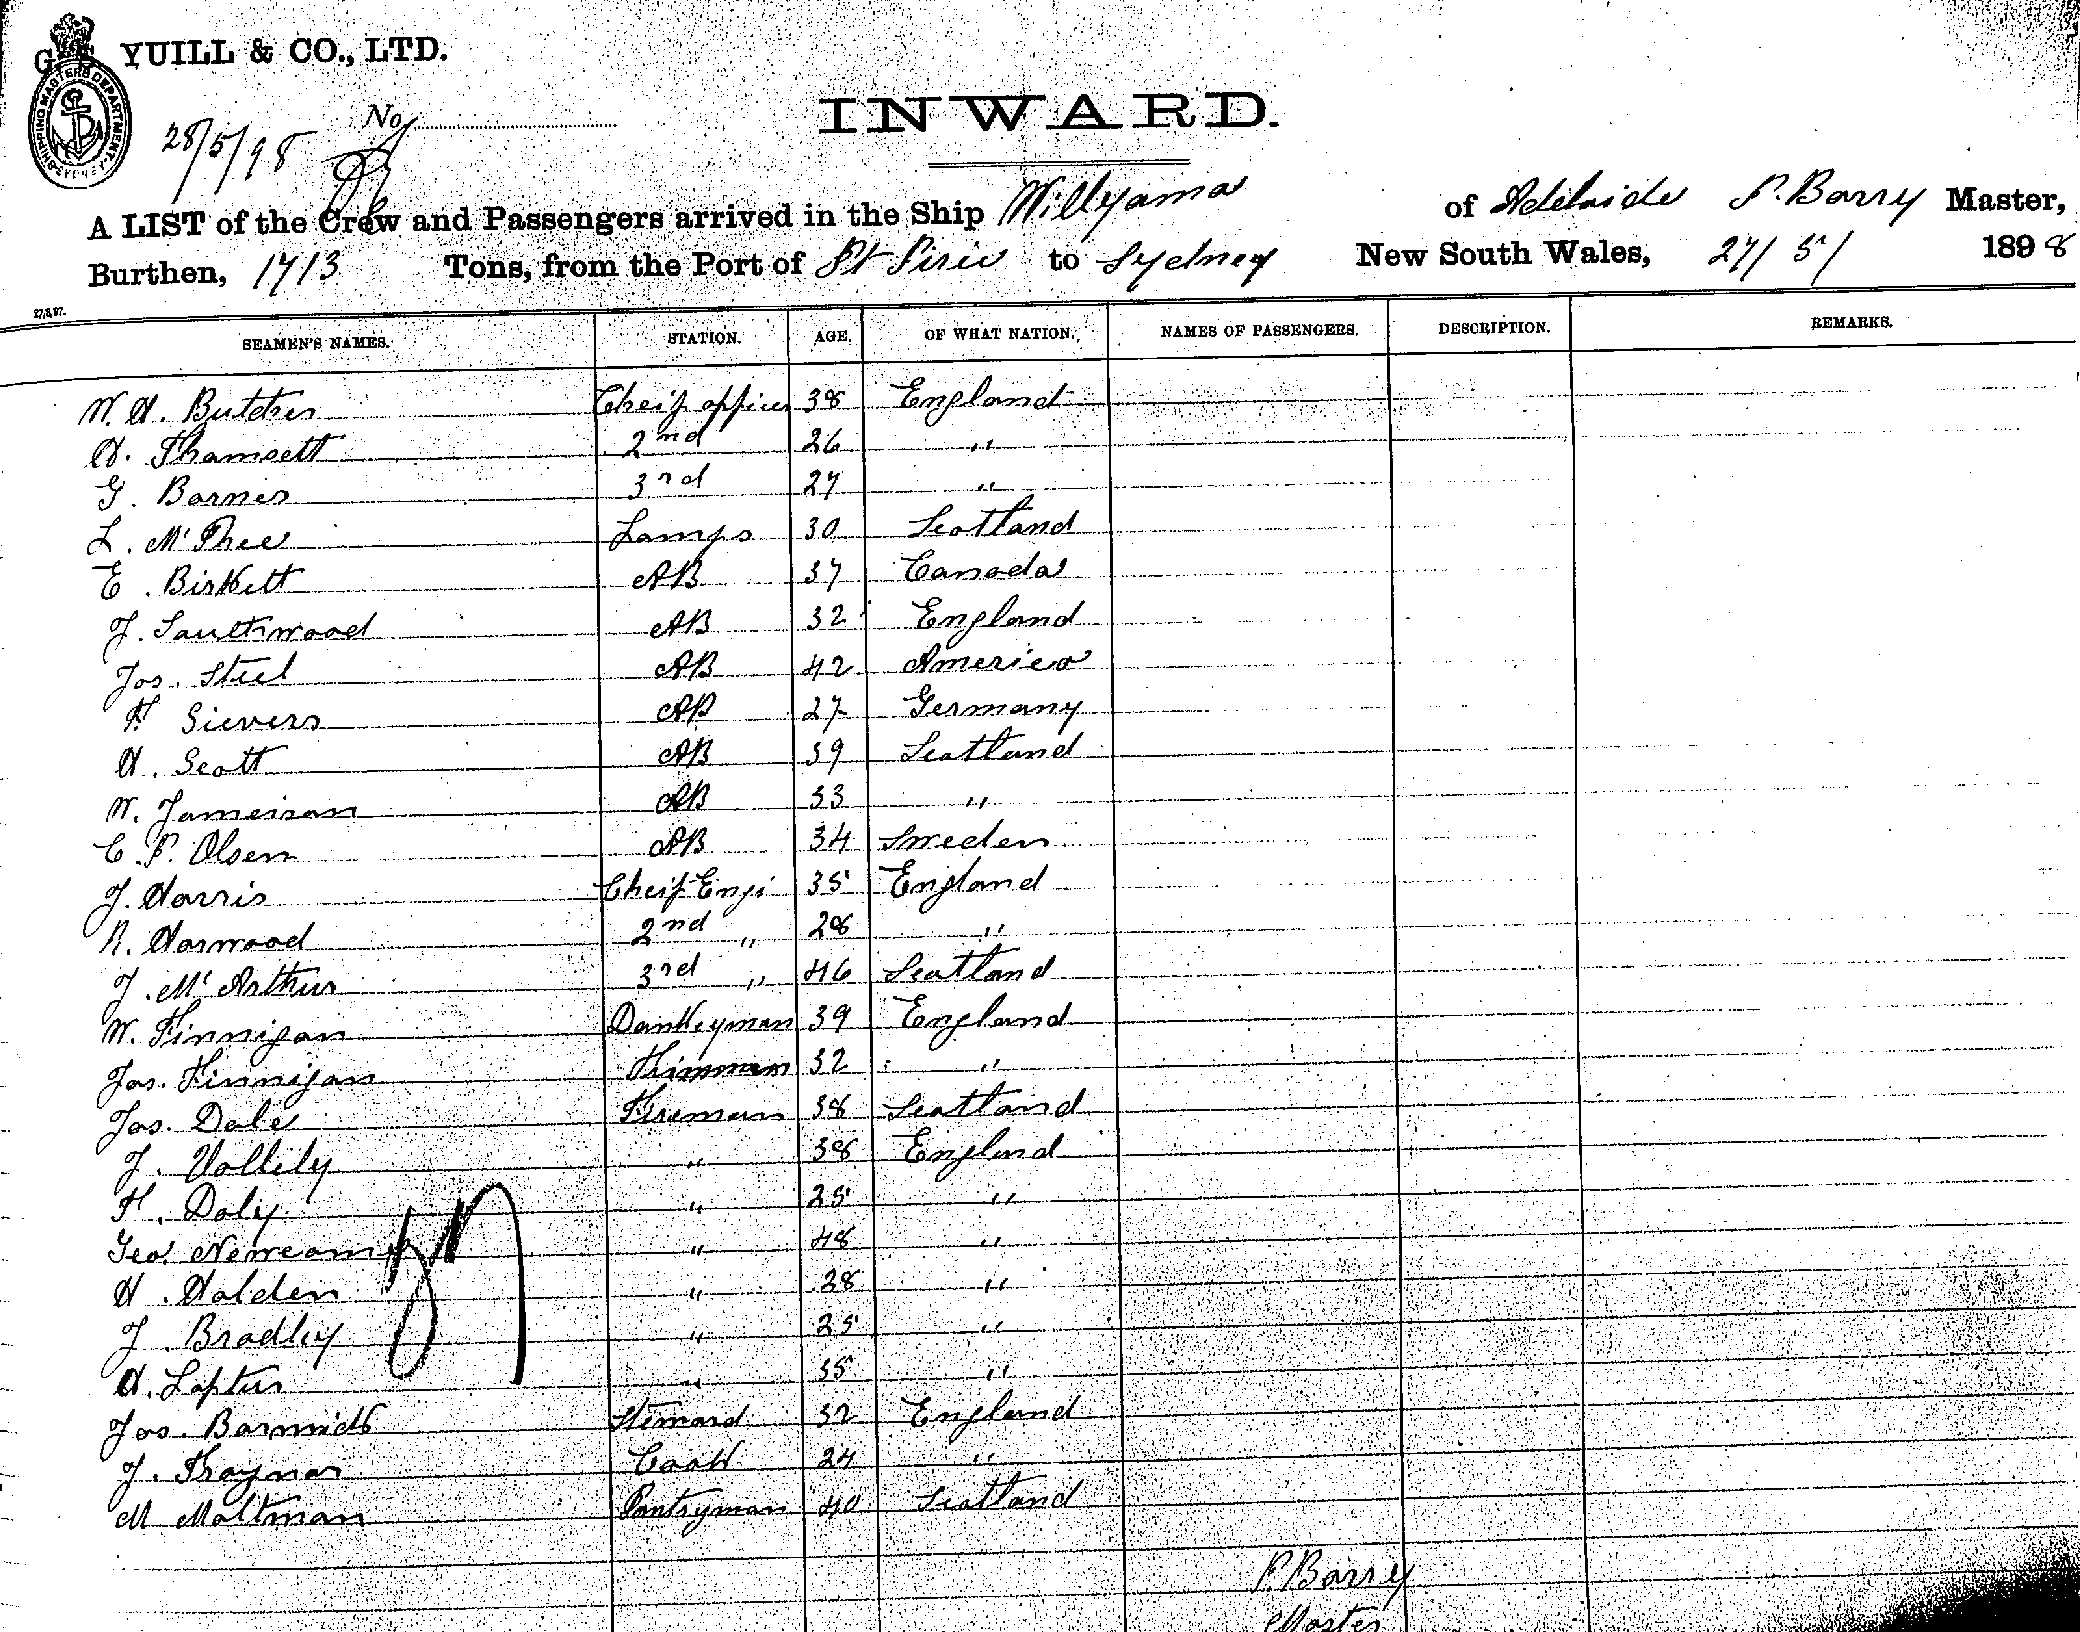 G. E. YUILL & CO., LTD.
SHIPPING MASTERS DEPARTMENT. SYDNEY
28/5/98
No.
INWARD.
A LIST of the Crew and Passengers arrived in the Ship Willyama of Adelaide P. Barry Master,
Burthen, 1713 Tons, from the Port of Pt Pirie to Sydney New South Wales, 27/5/ 1898
27,8,97.
SEAMEN'S NAMES. STATION. AGE. OF WHAT NATION. NAMES OF PASSENGERS. DESCRIPTION. REMARKS.
W. H. Butcher Cheif officer 38 England
H. Thamsett 2nd 26 "
G. Barnes 3rd 27 "
L. McPhee Lamps 30 Scotland
E. Birkett AB 37 Canada
J. Southwood AB 32 England
Jos. Steel AB 42 America
H Sievers AB 27 Germany
H. Scott AB 39 Scotland
W. Jameison AB 33 "
C. P. Olsen AB 34 Sweden
J. Harris Cheif Engi 35 England
R. Harwood 2nd " 28 "
J. McArthur 3rd " 46 Scotland
W. Finnigan Donkeyman 39 England
Jas. Finnigan 32 "
Jas. Dale Fireman 38 Scotland
J. Vallily " 38 England
F. Daly " 25 "
Geo. Newcom " 48 "
H. Holden " 28 "
J. Bradley " 25 "
H. Loftus " 35 "
Jos. Steward 32 England
J. Traynor Cook 24 "
M Moltman Pantryman 40 Scotland
P. Barry
Master